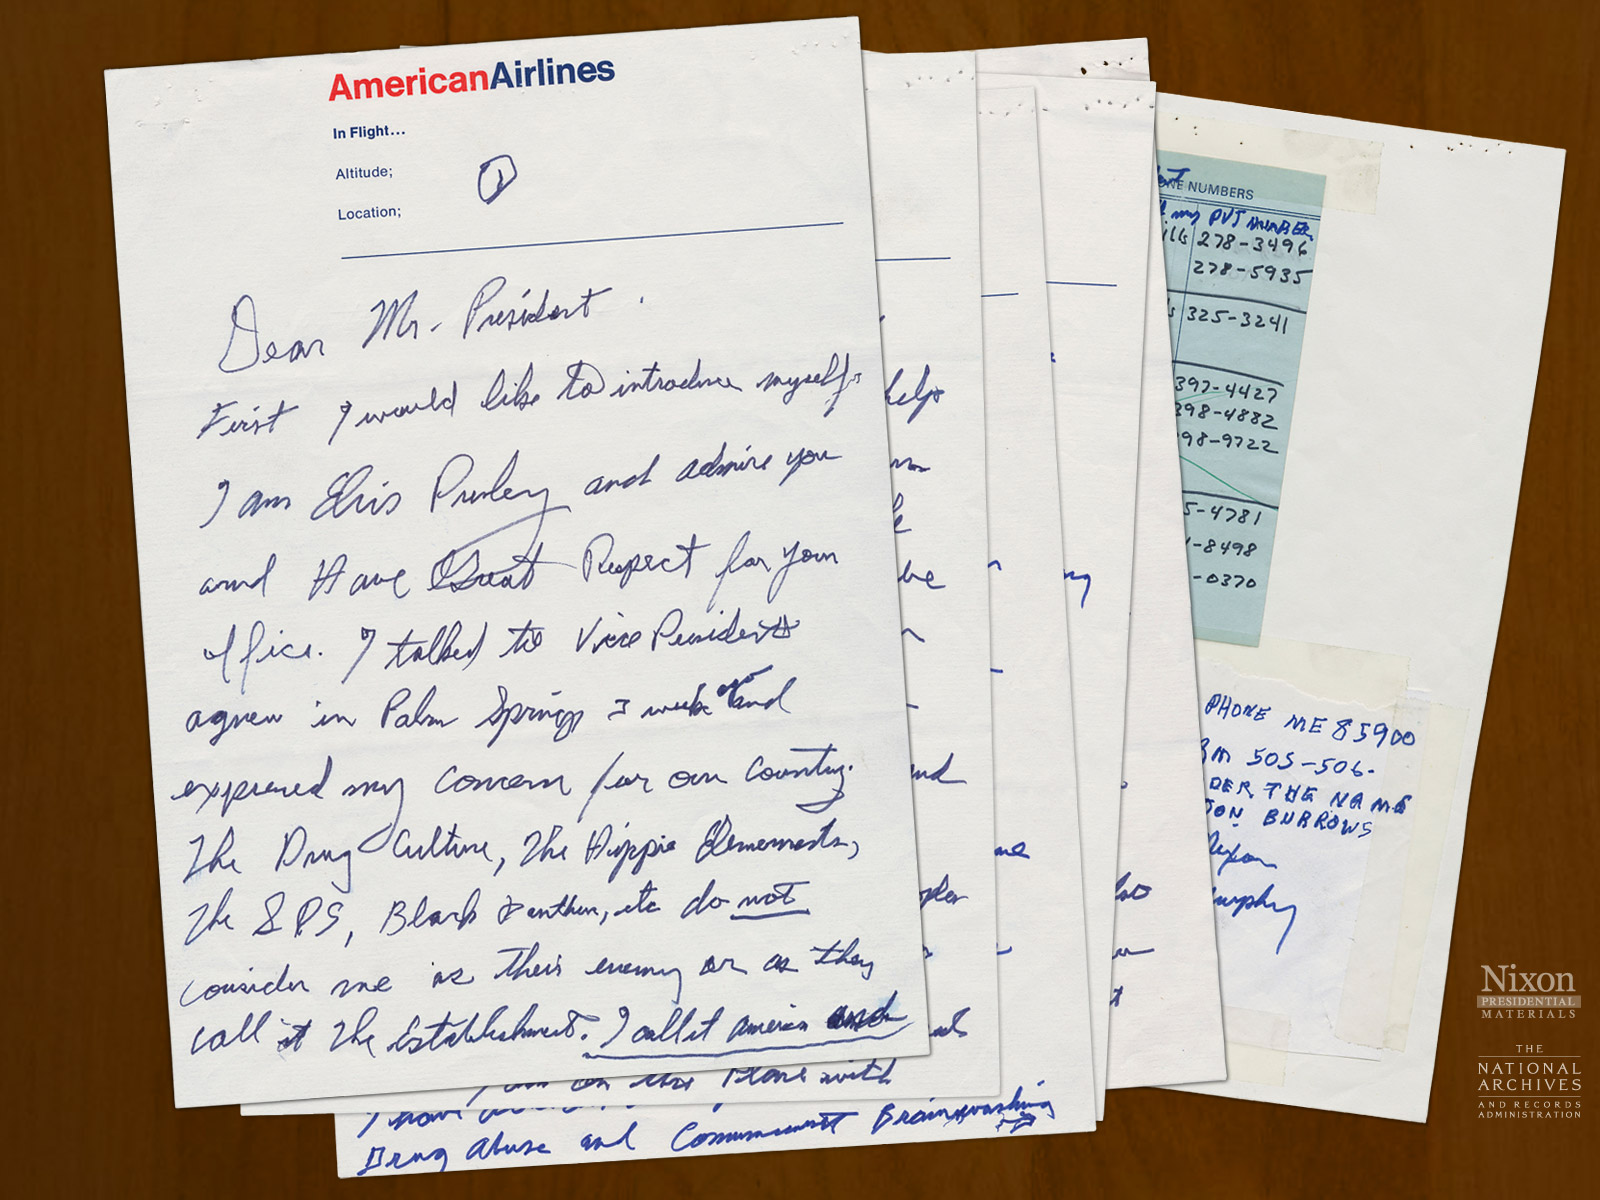 AmericanAirlines
In Flight...
Altitude;
Location;
1
Dear Mr. President.
First I would like to introduce myself.
I am Elvis Presley and admire you
and Have Great Respect for your
office. I talked to Vice President
agnew in Palm Springs 3 weeks ago and
expressed my concern for our Country.
The Drug Culture, The Hippie Elements,
The SDS, Black Panthers, etc do not
consider me as their enemy or as they
call it The Establishment. I call it america and
help
be
and
me
also
I am on the Plane with
I have
Drug Abuse and Communist Brainwashing
NE NUMBERS
my PVT NUMBER
278-3496
278-5935
325-3241
397-4427
398-4882
98-9722
5-4781
-8498
-0370
PHONE ME 85900
RM 505-506.
DER THE NAME
JON BURROWS
Nixon
urphy
Nixon
PRESIDENTIAL
MATERIALS
THE
NATIONAL
ARCHIVES
AND RECORDS
ADMINISTRATION